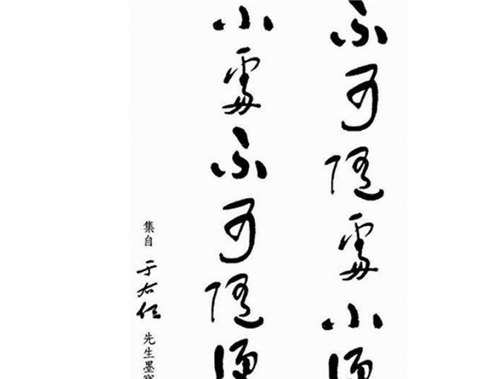 不可隨處小便
小處不可隨便
集自 于右任 先生墨寶